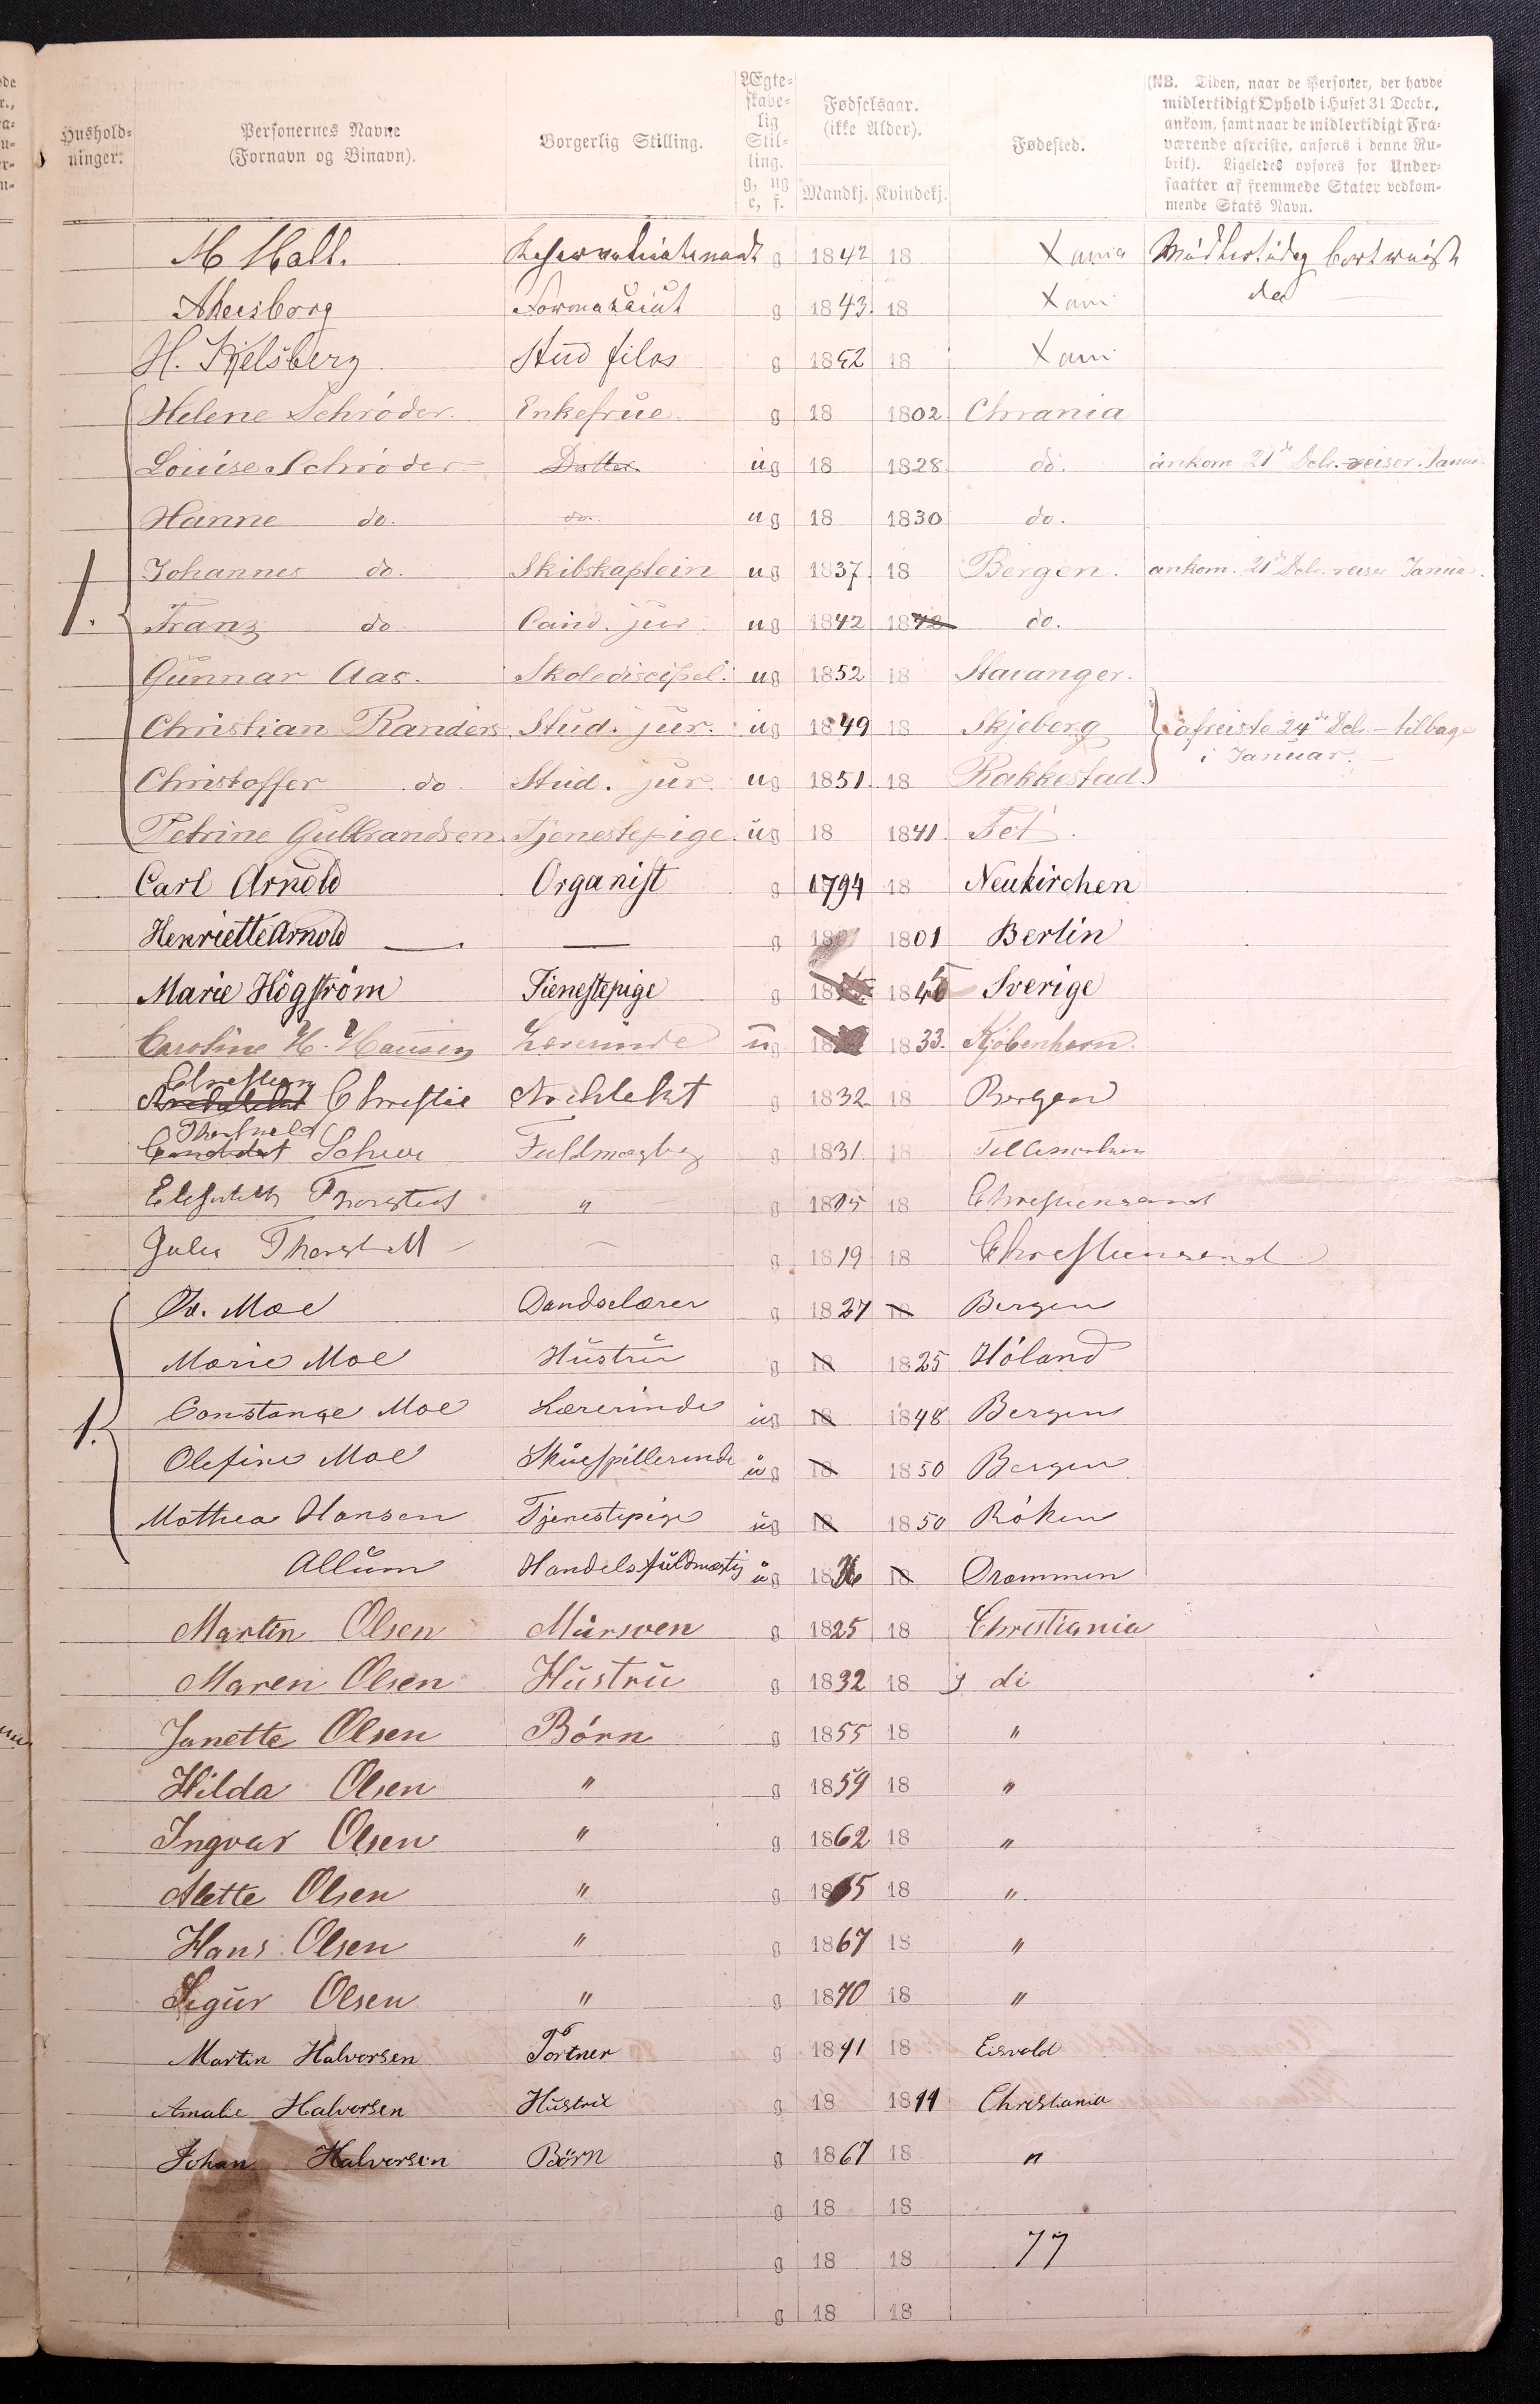 Hushold-
ninger.
Personernes Navne
(Fornavn og Binavn).
Borgerlig Stilling.
Ægte-
skabe-
lig
Stil-
ling.
g, ug
e, f.
Fødselsaar.
(ikke Alder).
Mandkj. Kvindekj.
Fødested.
(NB. Tiden, naar de Personer, der havde
midlertidigt Ophold i Huset 31 Decbr.,
ankom, samt naar de midlertidigt Fra-
værende afreiste, anføres i denne Ru-
brik). Ligeledes opføres for Under-
saatter af fremmede Stater vedkom-
mende Stats Navn.
M Hall. g 1842 18 Xania Midlertidig bortreist
Akersborg g 1843 18 Xani do
H. Kjelsberg Stud filos g 1852 18 Xani
Helene Schrøder. Enkefrue g 18 1802 Chrania
Louise Schrøder Datter ug 18 1828 do. ankom 21de Dcb. reiser Januar
Hanne do. do. ug 18 1830 do.
1. Johannes do. Skibskaptein ug 1837 18 Bergen. ankom. 21de Dcb. reiser Januar.
Franz do Cand. jur ug 1842 1842 do.
Gunnar Aas. Skolediscipel. ug 1852 18 Stavanger.
Christian Randers Stud. jur. ug 1849 18 Skjeberg afreiste 24de Dcb. – tilbage
i Januar.
Christoffer do Stud. jur. ug 1851 18 Rakkestad
Petrine Gulbrandsen Tjenestepige. ug 18 1841 Fet
Carl Arnold Organist g 1794 18 Neukirchen
Henriette Arnold — g 18 1801 Berlin
Marie Högström Tienestepige g 18 1845 Sverige
Caroline H. Hansen Lærerinde ug 18 1833. Kjøbenhavn.
Christian
Christie Architekt g 1832 18 Bergen
Thorvald
Candidat Fuldmægtig g 1831 18
Elisabeth " g 1805 18 Christiansand
Julie g 1819 18 Christiansand
Ov. Moe Dandselærer g 1827 18 Bergen
Marie Moe Hustru g 18 1825 Høland
1. Constance Moe Lærerinde ug 18 1848 Bergen
Olefine Moe Skuespillerinde ug 18 1850 Bergen
Mathea Hansen Tjenestepige ug 18 1850 Røken
Allum Handelsfuldmægtig ug 1836 18 Drammen
Martin Olsen Mursven g 1825 18 Christiania
Maren Olsen Hustru g 1832 18 di
Janette Olsen Børn g 1855 18 "
Hilda Olsen " g 1859 18 "
Ingvar Olsen " g 1862 18 "
Alette Olsen " g 1865 18 "
Hans Olsen " g 1867 18 "
Sigur Olsen " g 1870 18 "
Martin Halvorsen Portner g 1841 18 Eisvold
Amalie Halvorsen Hustru g 18 1844 Christiania
Johan Halvorsen Børn g 1867 18 "
g 18 18
g 18 18 77
g 18 18